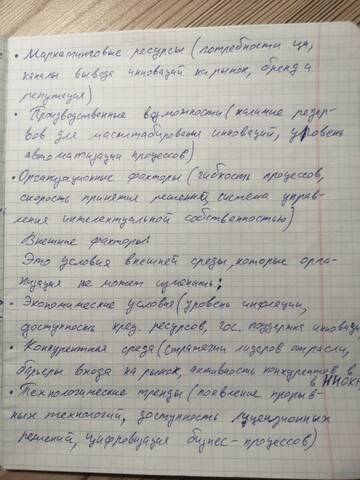 • Маркетинговые ресурсы (потребности ЦА,
каналы вывода инноваций на рынок, бренд и
репутация)
• Производственные возможности (наличие резер-
вов для масштабирования инноваций, уровень
автоматизации процессов)
• Организационные факторы (гибкость процессов,
скорость принятия решений, система управ-
ления интелектуальной собственностью)
Внешние факторы:
Это условия внешней среды, которые орга-
низация не может изменить;
• Экономические условия (уровень инфляции,
доступность кред. ресурсов, гос. поддержка инноваци
• Конкурентная среда (стратегии лидеров отрасли,
барьеры входа на рынок, активность конкурентов в
в НИОКР
• Технологические тренды (появление прорыв-
ных технологий, доступность лицензионных
решений, цифровизация бизнес-процессов)